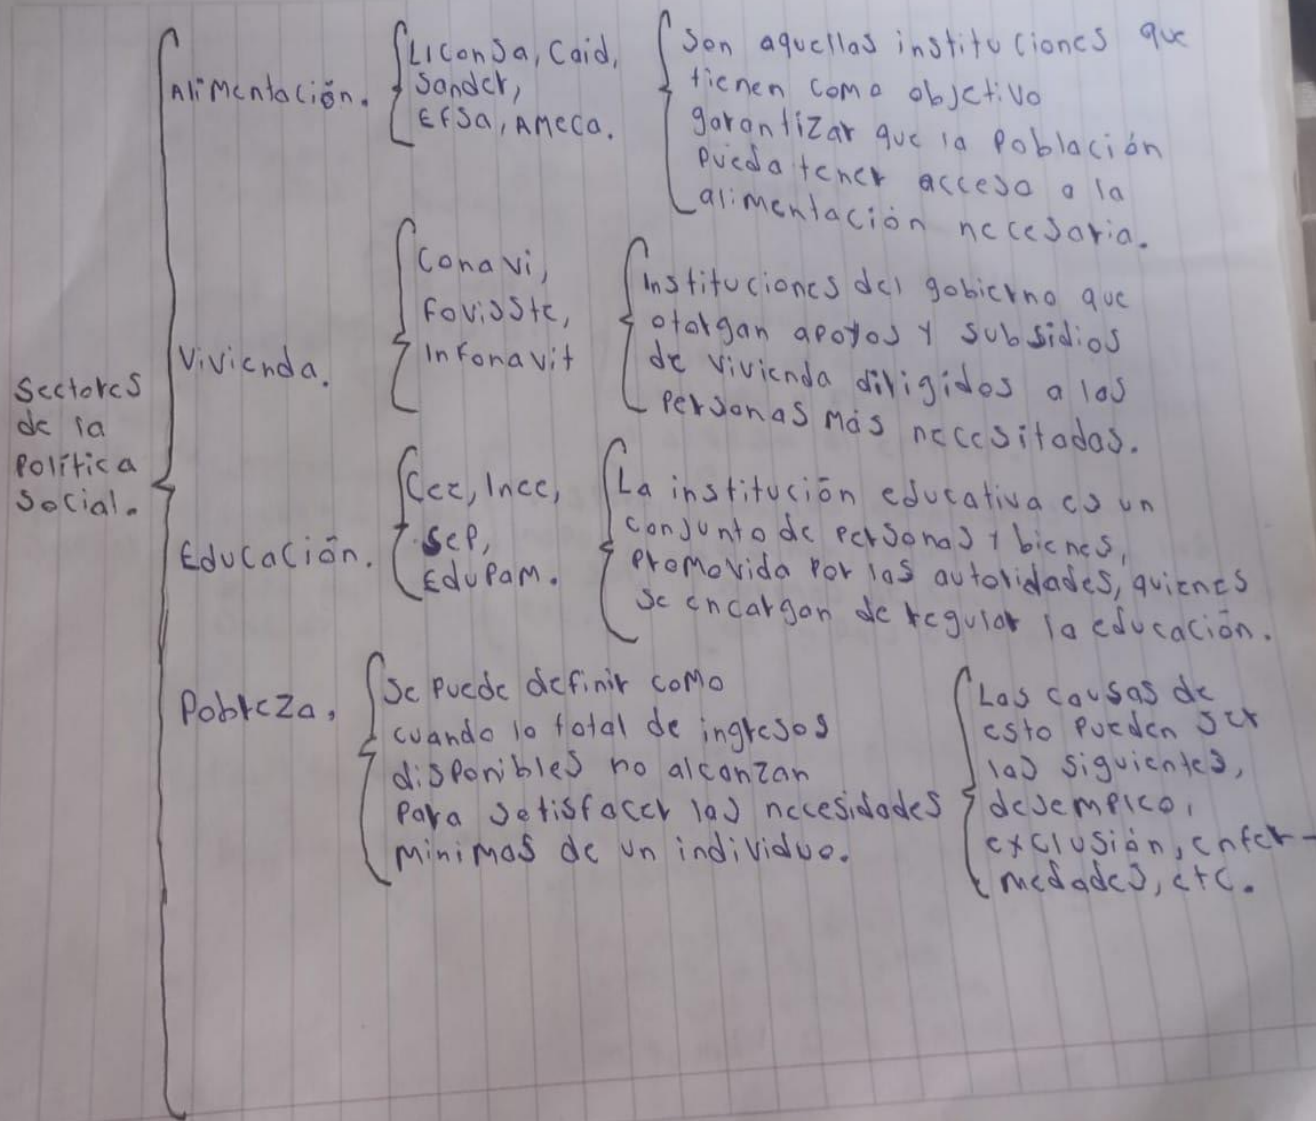 Sectores
de la
Política
Social.
Alimentación.
Liconsa, Caid,
Sander,
EFSa, AMeca.
Son aquellas instituciones que
tienen como objetivo
garantizar que la Población
Pueda tener acceso a la
alimentación necesaria.
Vivienda.
Conavi,
Fovisste,
Infonavit
Instituciones del gobierno que
otorgan apoyos y subsidios
de vivienda dirigidos a las
Personas más necesitadas.
Educación.
Cee, Inee,
SeP,
EduPam.
La institución educativa es un
conjunto de Personas y bienes,
Promovida Por las autoridades, quienes
se encargan de regular la educación.
Pobreza.
Se Puede definir como
cuando lo total de ingresos
disponibles no alcanzan
Para setisfacer las necesidades
minimas de un individuo.
Las causas de
esto Pueden ser
las siguientes,
desempleo,
exclusión, enfer-
medades, etc.